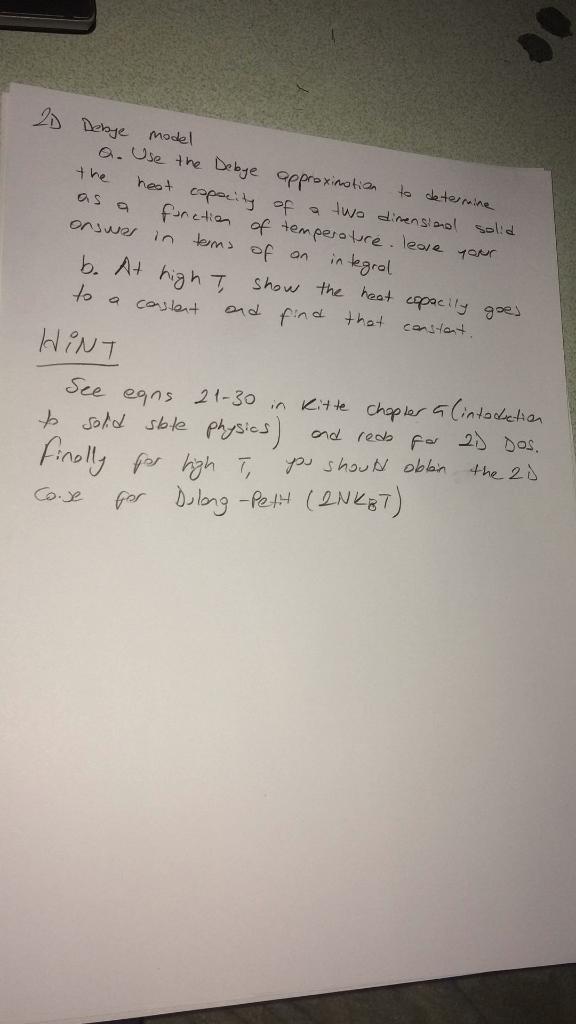 2D Debye model
a. Use the Debye approximation to determine
the heat capacity of a two dimensional solid
as a function of temperature. leave your
answer in terms of an integral
b. At high T, show the heat capacity goes
to a constant and find that constant.
HINT
See eqns 21-30 in Kitte chapter 5 (intoduction
to solid state physics) and redo for 2D DOS.
Finally for high T, you should obtain the 2D
Case for Dulong-Petit (2NKBT)